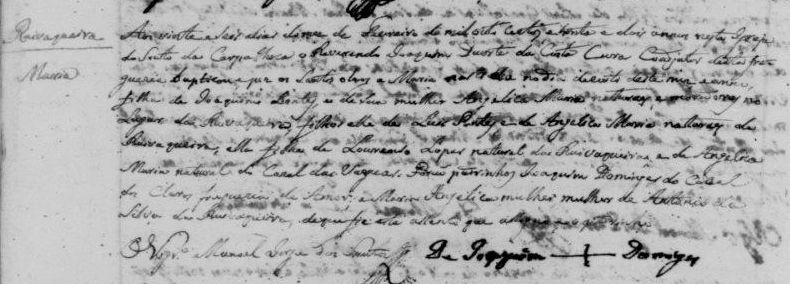 Ruivaqueira
Maria
Aos vinte e seis dias do mez de Fevereiro de mil oito centos e trinta e dois annos nesta Igreja
da Snra da o Reverendo Joaquim Duarte da Costa Cura Coadjutor desta fre
guezia baptizou e pos os Santos oleos a Maria nascida no dia dezoito deste mez e anno
filha de Joaquim Pontes e de sua mulher Angelica Maria naturaes e moradores no
Lugar da Ruivaqueira, filho elle de Luis Pontes e de Angelica Maria naturaes de
Ruivaqueira, ella filha de Lourenço Lopes natural das Ruivaqueiras e de Angelica
Maria natural do Cazal das Vargeas. Forão padrinhos Joaquim Domingues do Cazal
dos Claros freguezia de Amor, e Maria Angelica mulher mulher de Antonio da
Silva da Ruivaqueira, de que fiz este assento que
O Vigr.º Manoel Jorge dos Santos De Joaquim + Domingues